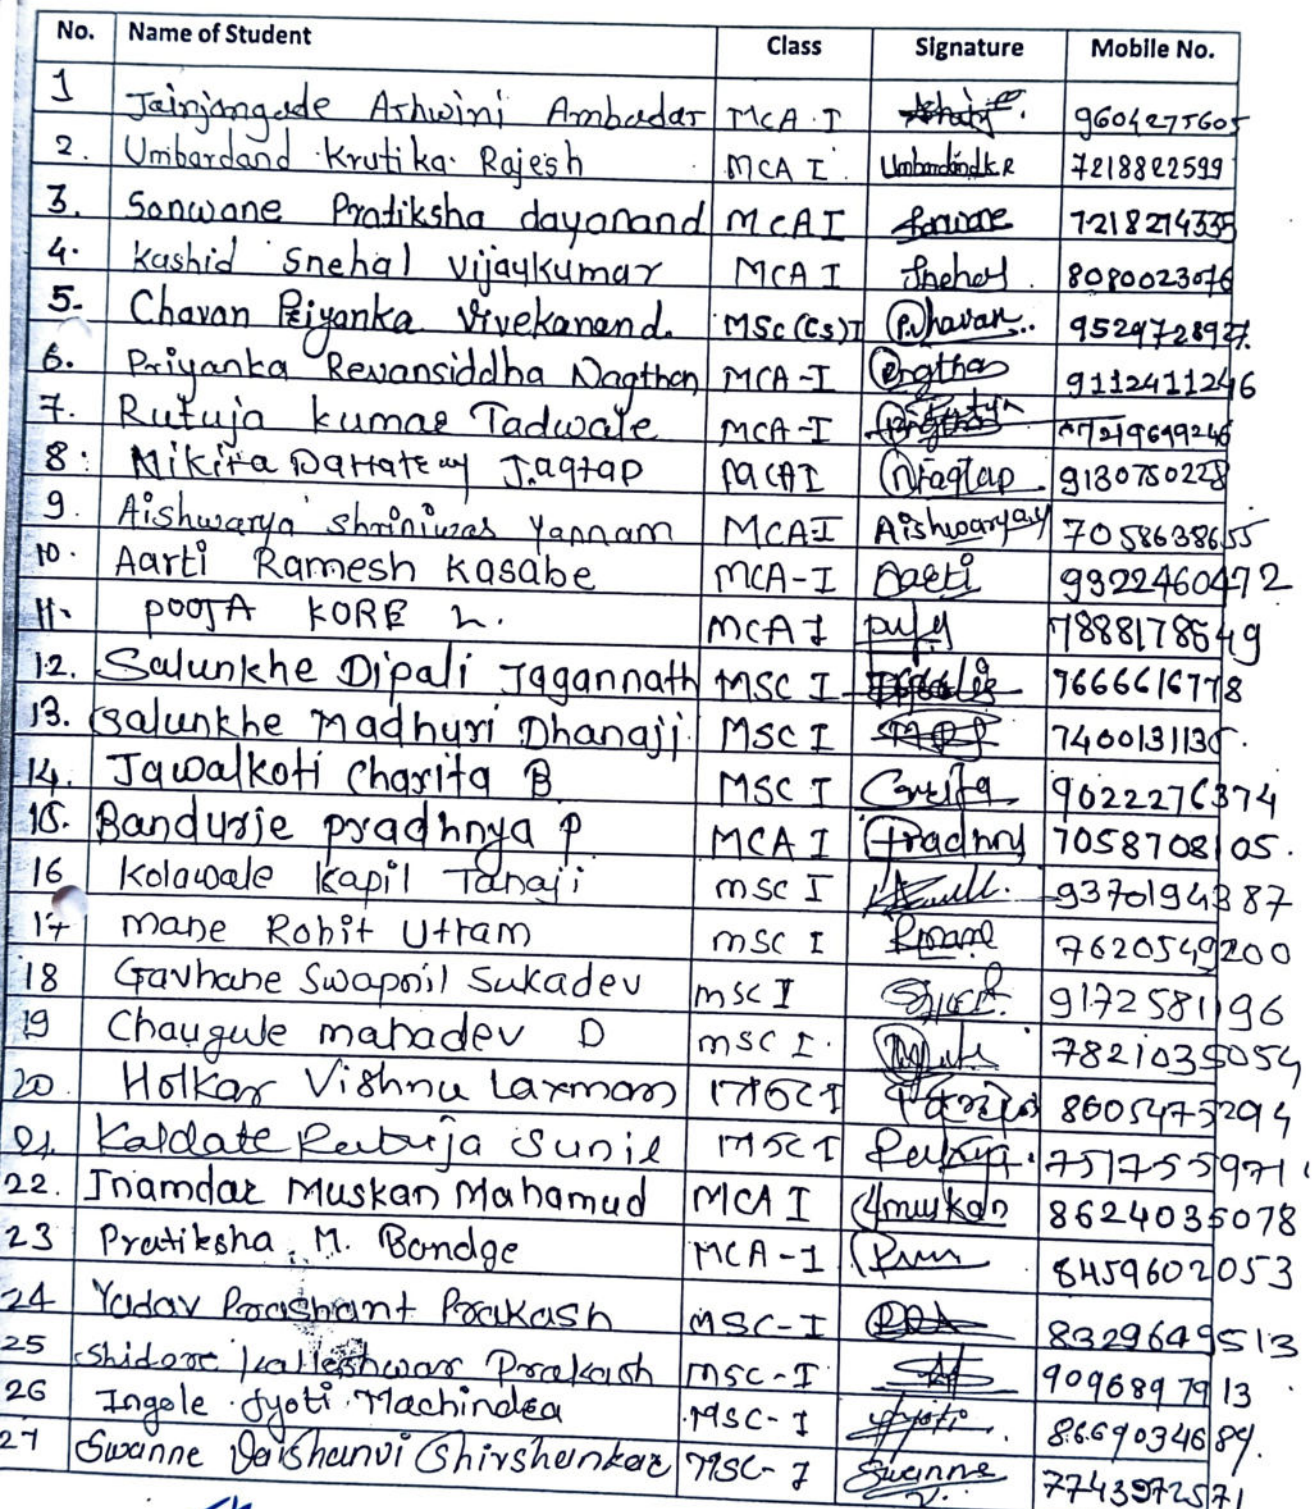 No. Name of Student Class Signature Mobile No.
1 Jainjangade Ashwini Ambadas MCA I 9604275605
2. Umbardand Krutika Rajesh MCA I Umbardand K R 7218822599
3. Sonwane Pratiksha dayanand MCA I 7218274335
4. Kashid Snehal Vijaykumar MCA I Snehal 8080023076
5. Chavan Priyanka Vivekanand. MSc (Cs) I P.Chavan 9529728927.
6. Priyanka Revansiddha Nagthan MCA-I 9112411246
7. Rutuja kumar Tadwale MCA-I 7219649246
8. Nikita Dattatray Jagtap MCAI NJagtap 9130780228
9. Aishwarya Shriniwas Yannam MCAI Aishwaryay 7058638655
10. Aarti Ramesh Kasabe MCA-I Aarti 9322460472
11. POOJA KORE L. MCA I 7888178549
12. Salunkhe Dipali Jagannath MSC I 7666616778
13. Salunkhe Madhuri Dhanaji MSC I 7400131135.
14. Jawalkoti Charita B MSC I 9022276374
15. Bandurje pradhnya P MCA I Pradhny 7058708105.
16 Kolawale Kapil Tanaji MSC I 9370194387
17 Mane Rohit Uttam MSC I Rmane 7620549200
18 Gavhane Swapnil Sukadev MSC I 9172581196
19 Chaugule mahadev D MSC I. 7821035054
20. Holkar Vishnu Laxman MSC I 8605475294
21. Kaldate Rutuja Sunil MSC I 7517559971
22. Inamdar Muskan Mahamud MCA I muskan 8624035078
23 Pratiksha. M. Bondge MCA-I 8459602053
24 Yadav Prashant Prakash MSC-I 8329649513
25 Shidore Kalleshwar Prakash MSC-I 9096897913
26 Ingole Jyoti Machindra MSC-I Jyoti 8669034684.
27 Swanne Vaishanvi Shivshankar MSC-I Swanne V. 7743972571